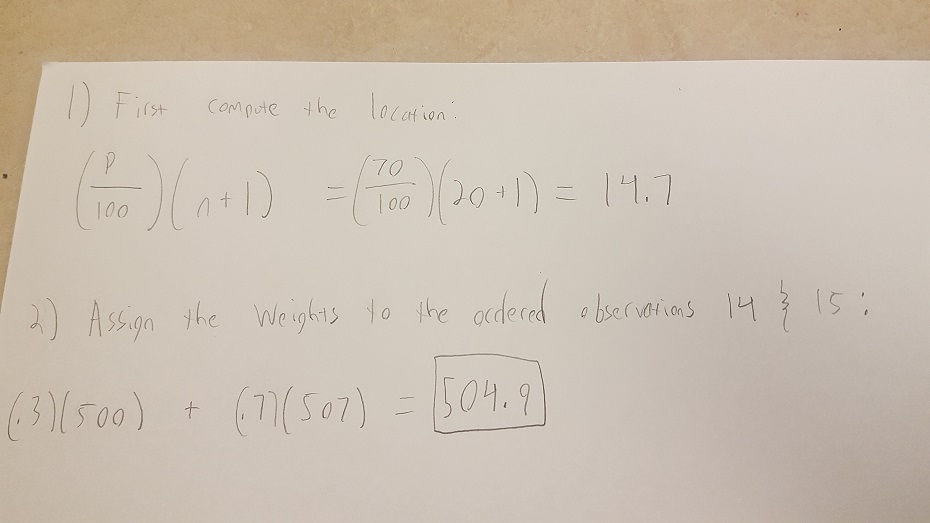 1) First compute the location:
(P/100)(n+1) = (70/100)(20+1) = 14.7
2) Assign the weights to the ordered observations 14 & 15:
(.3)(500) + (.7)(507) = 504.9